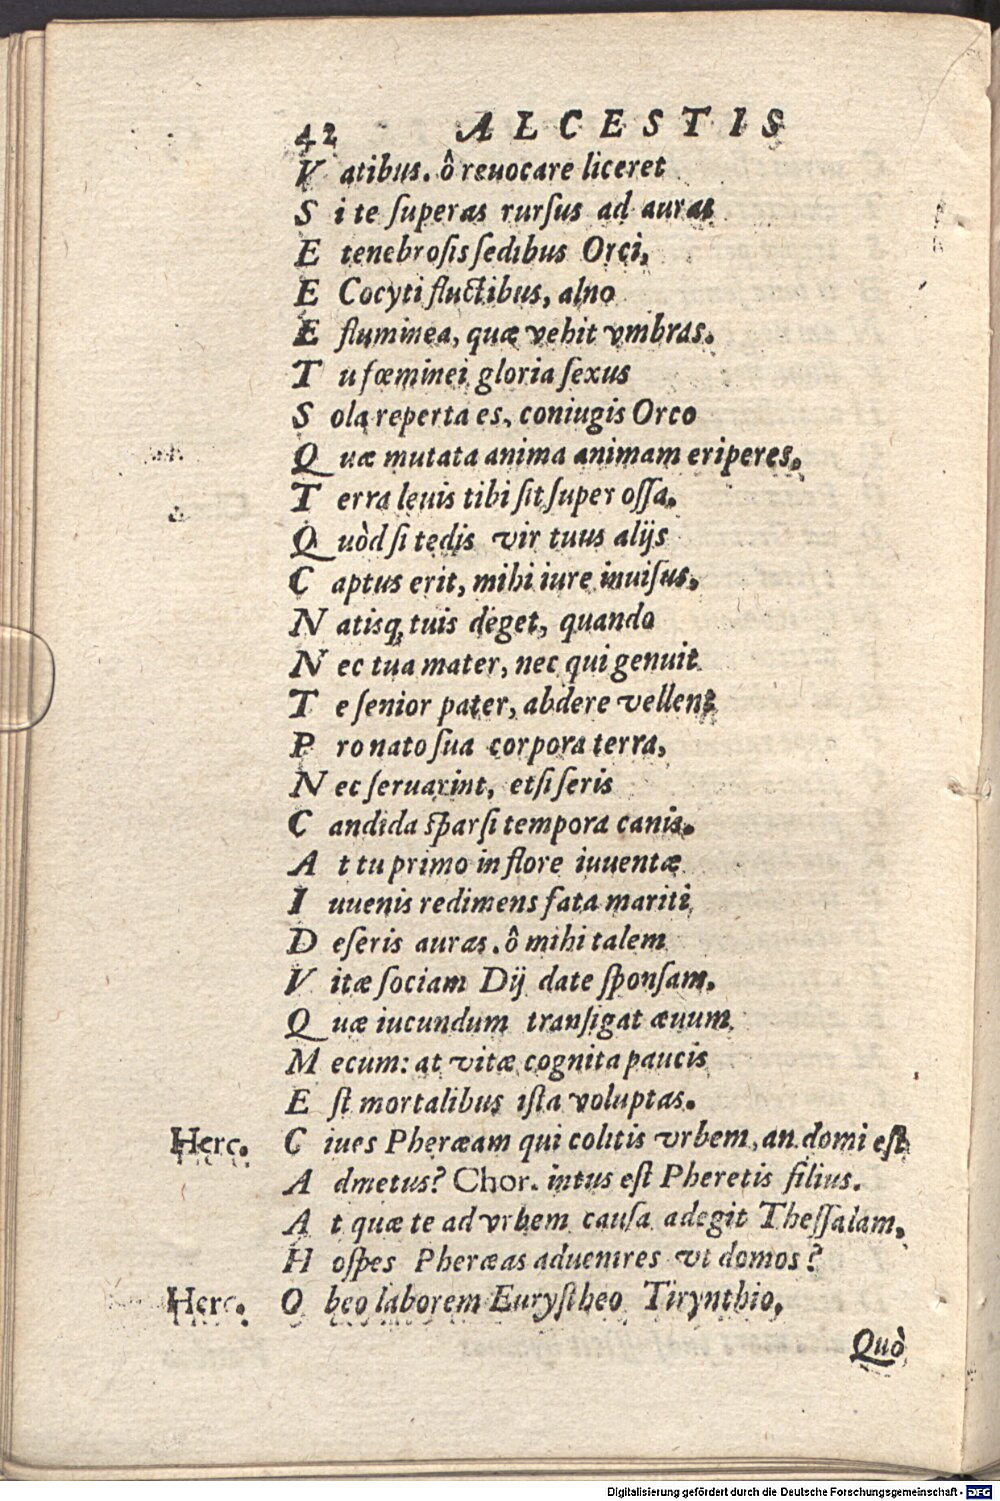 42 ALCESTIS
Vatibus. ô reuocare liceret
Si te ſuperas rurſus ad auras
E tenebroſis ſedibus Orci,
E Cocyti fluctibus, alno
E fluminea, quæ vehit vmbras.
Tu fœminei gloria ſexus
Sola reperta es, coniugis Orco
Quæ mutata anima animam eriperes.
Terra leuis tibi ſit ſuper oſſa.
Quòd ſi tedis vir tuus alijs
Captus erit, mihi iure inuiſus,
Natisq; tuis deget, quando
Nec tua mater, nec qui genuit
Te ſenior pater, abdere vellent
Pro nato ſua corpora terra,
Nec ſeruarint, etſi ſeris
Candida ſparſi tempora canis.
At tu primo in flore iuuentæ
Iuuenis redimens fata mariti
Deſeris auras. ô mihi talem
Vitæ ſociam Dij date ſponſam.
Quæ iucundum tranſigat æuum
Mecum: at vitæ cognita paucis
Eſt mortalibus iſta voluptas.
Herc. Ciues Pheræam qui colitis vrbem, an domi eſt
Admetus? Chor. intus eſt Pheretis filius.
At quæ te ad vrbem cauſa adegit Theſſalam,
Hoſpes Pheræas aduenires vt domos?
Herc. Obeo laborem Euryſtheo Tirynthio,
Quò
Digitalisierung gefördert durch die Deutsche Forschungsgemeinschaft - DFG